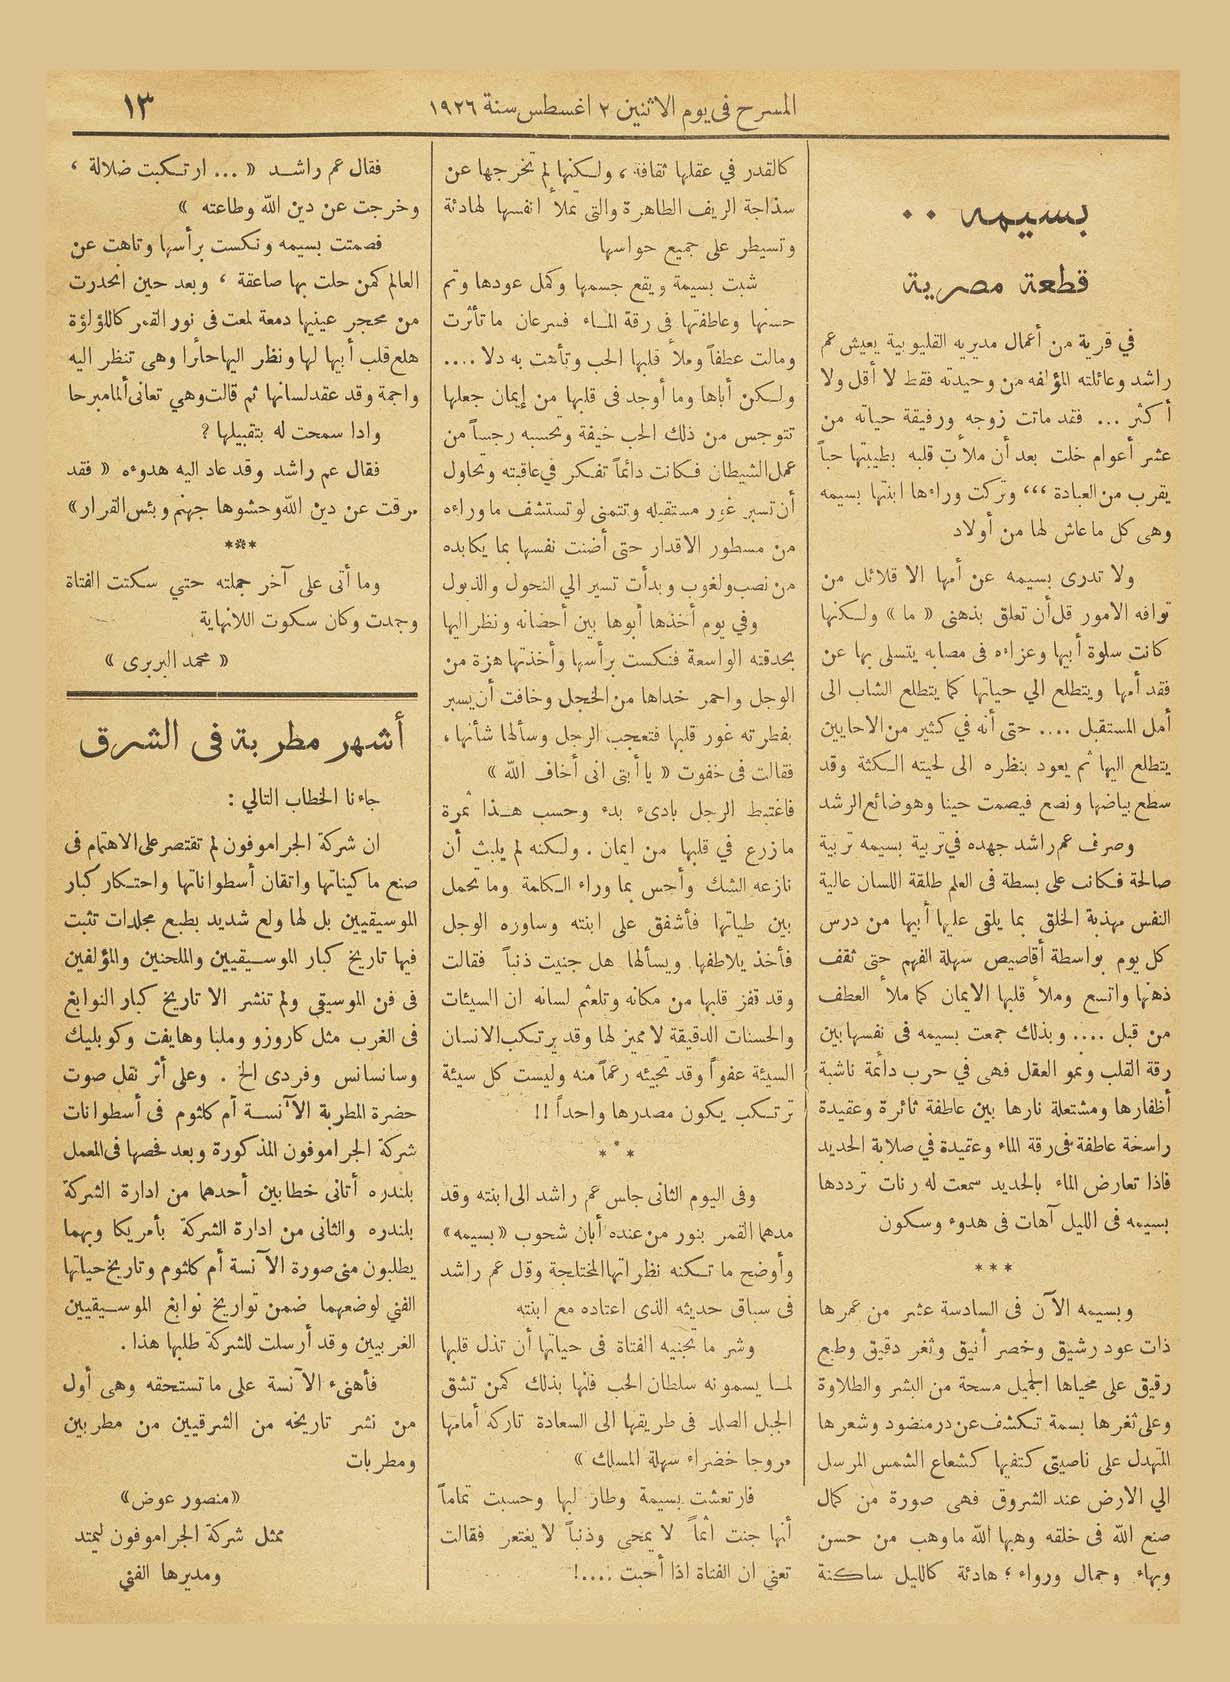 المسرح فى يوم الاثنين ٢ اغسطس سنة ١٩٢٦
١٣
بسيمه ..
قطعة مصرية
في قرية من أعمال مديريه القليوبية يعيش عم
راشد وعائلته المؤلفه من وحيدته فقط لا أقل ولا
أكثر ... فقد ماتت زوجه ورفيقة حياته من
عشر أعوام خلت بعد أن ملأت قلبه بطيبتها حباً
يقرب من العبادة ،،، وتركت وراءها ابنتها بسيمه
وهى كل ما عاش لها من أولاد
ولا تدرى بسيمه عن أمها الا قلائل من
توافه الامور قل أن تعلق بذهنى « ما » ولكنها
كانت سلوة أبيها وعزاءه فى مصابه يتسلى بها عن
فقد أمها ويتطلع الي حياتها كما يتطلع الشاب الى
أمل المستقبل .... حتى أنه في كثير من الاحايين
يتطلع اليها ثم يعود بنظره الى لحيته الكثة وقد
سطع بياضها ونصع فيصمت حينا وهو ضائع الرشد
وصرف عم راشد جهده في تربية بسيمه تربية
صالحة فكانت على بسطة فى العلم طلقة اللسان عالية
النفس مهذبة الخلق بما يلقى عليها أبيها من درس
كل يوم بواسطة أقاصيص سهلة الفهم حتى ثقف
ذهنها واتسع وملأ قلبها الايمان كما ملأ العطف
من قبل .... وبذلك جمعت بسيمه فى نفسها بين
رقة القلب ونمو العقل فهى في حرب دائمة ناشبة
أظفارها ومشتعلة نارها بين عاطفة ثائرة وعقيدة
راسخة عاطفة فى رقة الماء وعقيدة في صلابة الحديد
فاذا تعارض الماء بالحديد سمعت له رنات ترددها
بسيمه فى الليل آهات فى هدوء وسكون
***
وبسيمه الآن فى السادسة عشر من عمرها
ذات عود رشيق وخصر أنيق وثغر دقيق وطبع
رقيق على محياها الجميل مسحة من البشر والطلاوة
وعلى ثغرها بسمة تكشف عن در منضود وشعرها
المتهدل على ناصيتى كتفيها كشعاع الشمس المرسل
الي الارض عند الشروق فهى صورة من كمال
صنع الله فى خلقه وهبها الله ما وهب من حسن
وبهاء وجمال ورواء ؛ هادئة كالليل ساكنة
كالقدر في عقلها ثقافة ، ولكنها لم تخرجها عن
سذاجة الريف الطاهرة والتى تملأ انفسها لهادئة
وتسيطر على جميع حواسها
شبت بسيمة ويقع جسمها وكمل عودها وتم
حسنها وعاطفتها فى رقة الماء فسرعان ما تأثرت
ومالت عطفاً وملأ قلبها الحب وتأهت به دلا ....
ولكن أباها وما أوجد فى قلبها من إيمان جعلها
تتوجس من ذلك الحب خيفة وتحسبه رجساً من
عمل الشيطان فكانت دائماً تفكر في عاقبته وتحاول
أن تسبر غور مستقبله وتتمنى لو تستشف ما وراءه
من مسطور الاقدار حتى أضنت نفسها بما يكابده
من نصب ولغوب وبدأت تسير الي النحول والذبول
وفي يوم أخذها أبوها بين أحضانه ونظر اليها
بحدقته الواسعة فنكست برأسها وأخذتها هزة من
الوجل واحمر خداها من الخجل وخافت أن يسبر
بفطرته غور قلبها فتعجب الرجل وسألها شأنها ،
فقالت فى خفوت « يا أبتى انى أخاف الله »
فاغتبط الرجل بادىء بدء وحسب هذا ثمرة
ما زرع في قلبها من ايمان . ولكنه لم يلبث أن
نازعه الشك وأجس بما وراء الكلمة وما تحمل
بين طياتها فأشفق على ابنته وساوره الوجل
فأخذ يلاطفها ويسألها هل جنيت ذنباً فقالت
وقد قفز قلبها من مكانه وتلعثم لسانه ان السيئات
والحسنات الدقيقة لا مميز لها وقد يرتكب الانسان
السيئة عفواً وقد تجيئه رغماً منه وليست كل سيئة
ترتكب يكون مصدرها واحداً !!
* * *
وفى اليوم الثانى جلس عم راشد الى ابنته وقد
مدهما القمر بنور من عنده أبان شحوب «بسيمه»
وأوضح ما تكنه نظراتها المختلجة وقل عم راشد
فى سباق حديثه الذى اعتاده مع ابنته
وشر ما تجنيه الفتاة فى حياتها أن تذل قلبها
لما يسمونه سلطان الحب فلها بذلك كمن تشق
الجبل الصلد فى طريقها الى السعادة تاركه أمامها
مروجا خضراء سهلة المسلك »
فارتعشت بسيمة وطار لبها وحسبت تماماً
أنها جنت اثماً لا يمحى وذنباً لا يغتفر فقالت
تعني ان الفتاة اذا أحبت ....!
فقال عم راشد « ... ارتكبت ضلالة ،
وخرجت عن دين الله وطاعته »
فصمتت بسيمه ونكست برأسها وتاهت عن
العالم كمن حلت بها صاعقة ، وبعد حين انحدرت
من محجر عينيها دمعة لمعت فى نور القمر كاللؤلؤة
هلع قلب أبيها لها ونظر اليها حائرا وهى تنظر اليه
واجمة وقد عقد لسانها ثم قالت وهي تعانى ألما مبرحا
وادا سمحت له بتقبيلها ؟
فقال عم راشد وقد عاد اليه هدوءه « فقد
مرقت عن دين الله وحشوها جهنم وبئس القرار»
***
وما أتى على آخر جملته حتي سكتت الفتاة
وجمدت وكان سكوت اللانهاية
« محمد البربرى »
أشهر مطربة فى الشرق
جاءنا الخطاب التالي :
ان شركة الجراموفون لم تقتصر على الاهتمام فى
صنع ماكيناتها واتقان أسطواناتها واحتكار كبار
الموسيقيين بل لها ولع شديد بطبع مجلدات تثبت
فيها تاريخ كبار الموسيقيين والملحنين والمؤلفين
فى فن الموسيقي ولم تنشر الا تاريخ كبار النوابغ
فى الغرب مثل كاروزو وملبا وهايفت وكوبليك
وسانسانس وفردى الخ . وعلى أثر نقل صوت
حضرة المطربة الآنسة أم كلثوم فى أسطوانات
شركة الجراموفون المذكورة وبعد فحصها فى المعمل
بلندره أتانى خطابين أحدهما من ادارة الشركة
بلندره والثانى من ادارة الشركة بأمريكا وبهما
يطلبون منى صورة الآنسة أم كلثوم وتاريخ حياتها
الفني لوضعهما ضمن تواريخ نوابغ الموسيقيين
الغربيين وقد أرسلت للشركة طلبها هذا .
فأهنىء الآنسة على ما تستحقه وهى أول
من نشر تاريخه من الشرقيين من مطربين
ومطربات
«منصور عوض»
ممثل شركة الجراموفون ليمتد
ومديرها الفني